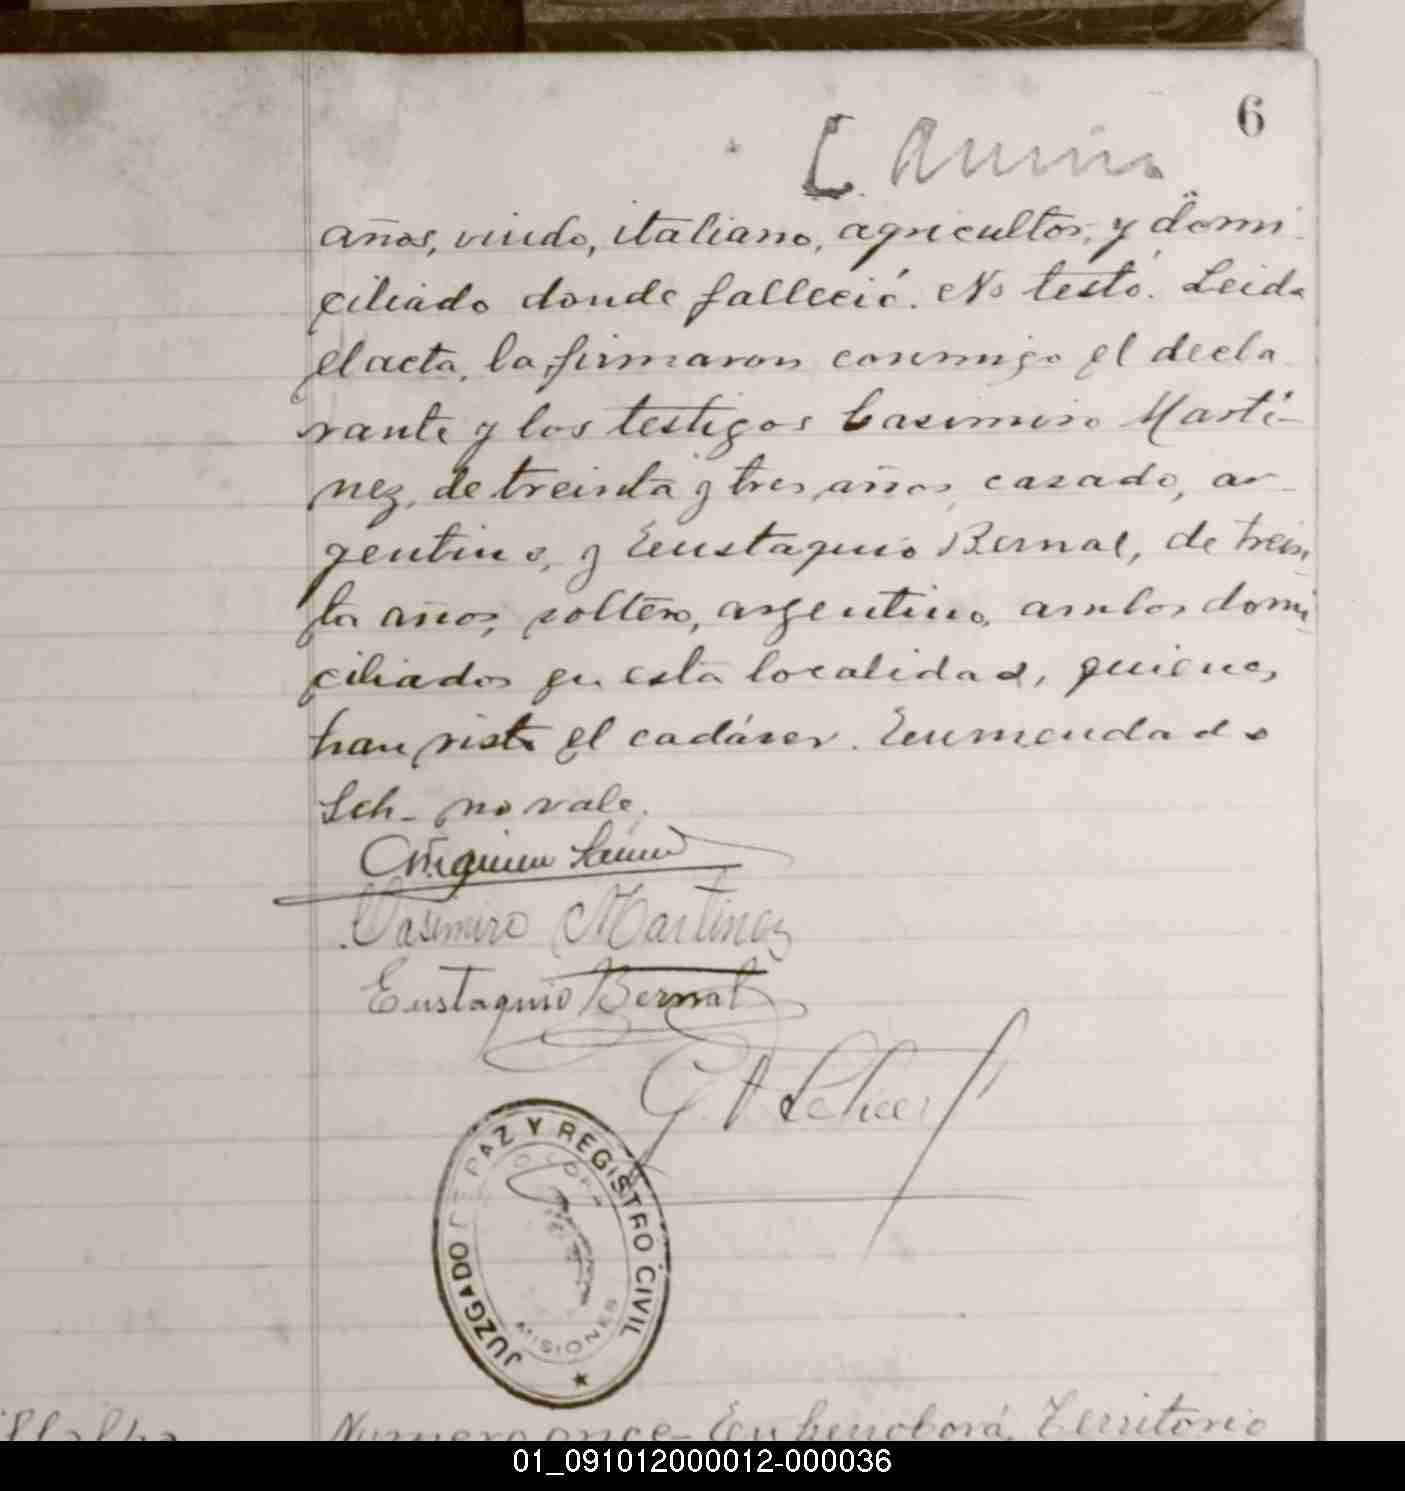 6
años, viudo, italiano, agricultor, y domi-
ciliado donde falleció. No testó. Leida
el acta, la firmaron conmigo el decla-
rante y los testigos Casimiro Martí-
nez, de treinta y tres años, casado, ar-
gentino, y Eustaquio Bernal, de trein-
ta años, soltero, argentino, ambos domi-
ciliados en esta localidad, quienes
han visto el cadáver. Enmendado
Sch- no vale.
Casimiro Martinez
Eustaquio Bernal
JUZGADO DE PAZ Y REGISTRO CIVIL
MISIONES
Numero once- En Territorio
01_091012000012-000036